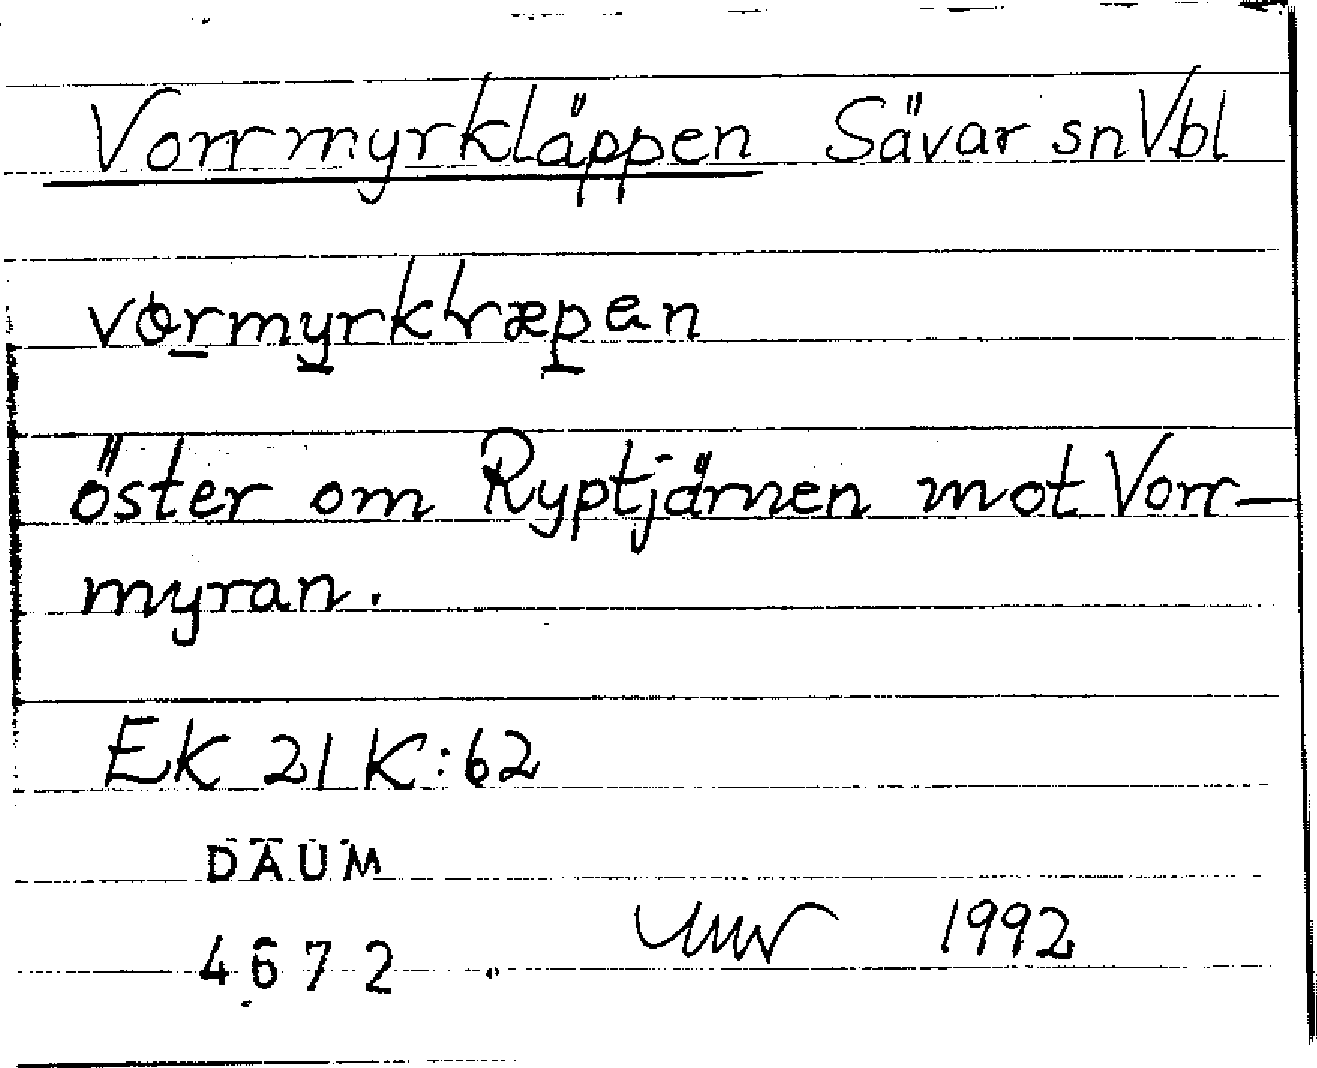 Vorrmyrkläppen Sävar sn Vbl
öster om Ryptjärnen mot Vorr-
myran.
EK 21 K:62
DAUM
4672
1992